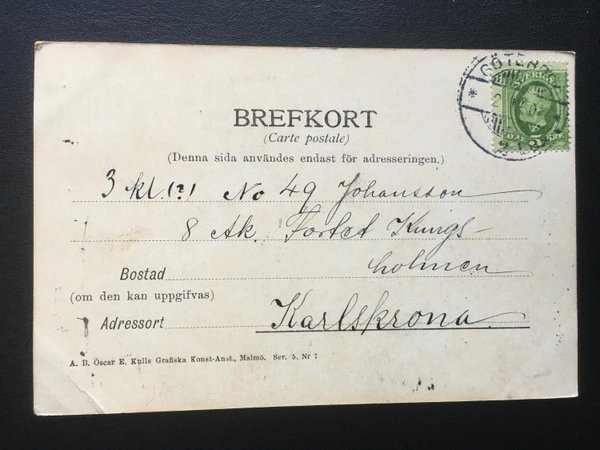 GÖTEBO
SVERIGE
BREFKORT
(Carte postale)
(Denna sida användes endast för adresseringen.)
3 kl. (?) No 49 Johansson
8 Ak. Fortet Kungs-
holmen
Bostad
(om den kan uppgifvas)
Adressort
Karlskrona.
A. B. Oscar E. Kulls Grafiska Konst-Anst., Malmö. Ser. 5. Nr 7